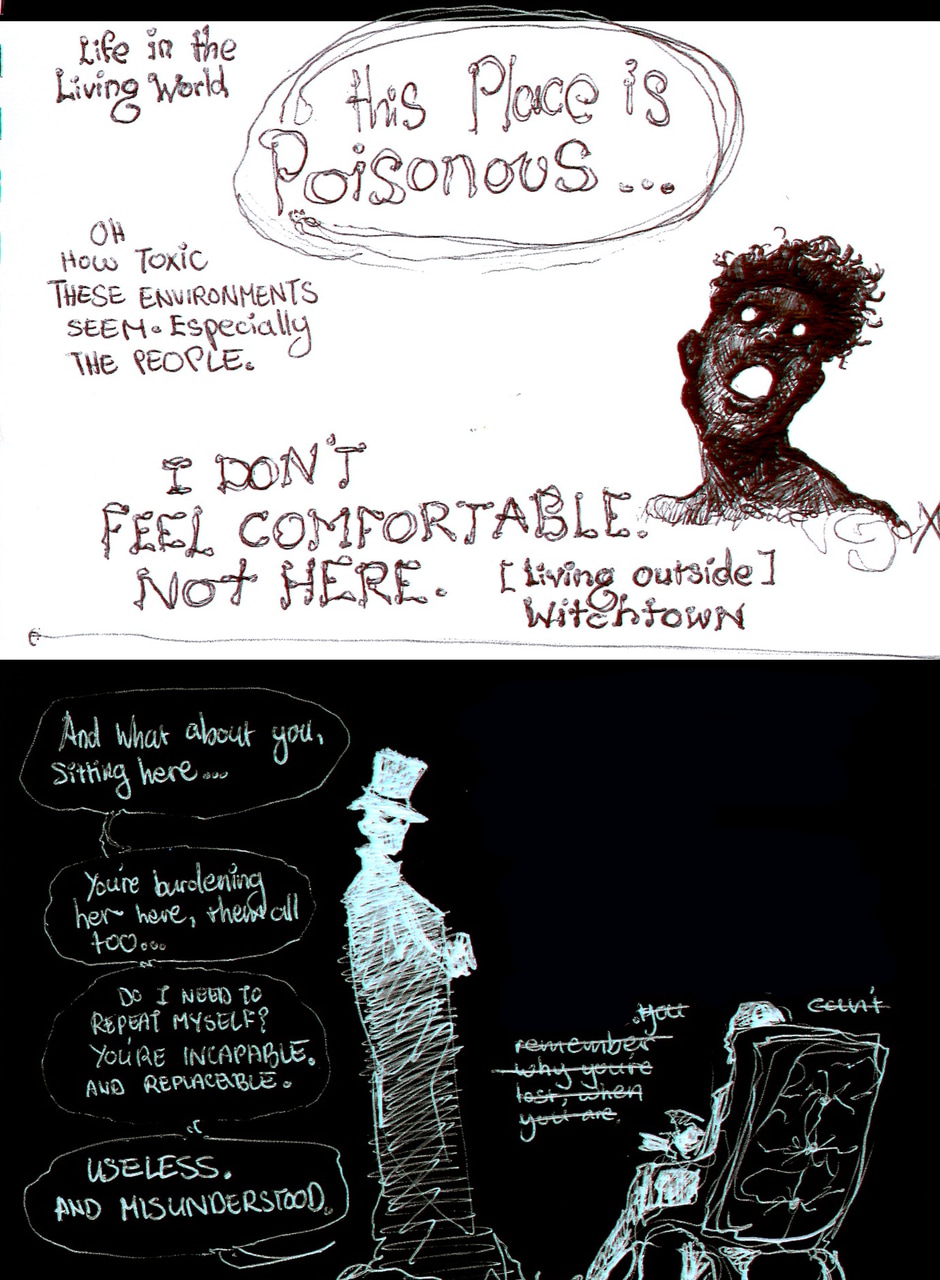 Life in the
Living World
this Place is
Poisonous...
OH
HOW TOXIC
THESE ENVIRONMENTS
SEEM. Especially
THE PEOPLE.
I DON'T
FEEL COMFORTABLE.
NOt HERE.
[living outside]
Witchtown
And what about you,
sitting here...
You're burdening
her here, them all
too...
DO I NEED TO
REPEAT MYSELF?
YOU'RE INCAPABLE.
AND REPLACEABLE.
USELESS.
AND MISUNDERSTOOD.
.you can't
remember
why you're
lost, when
you are.